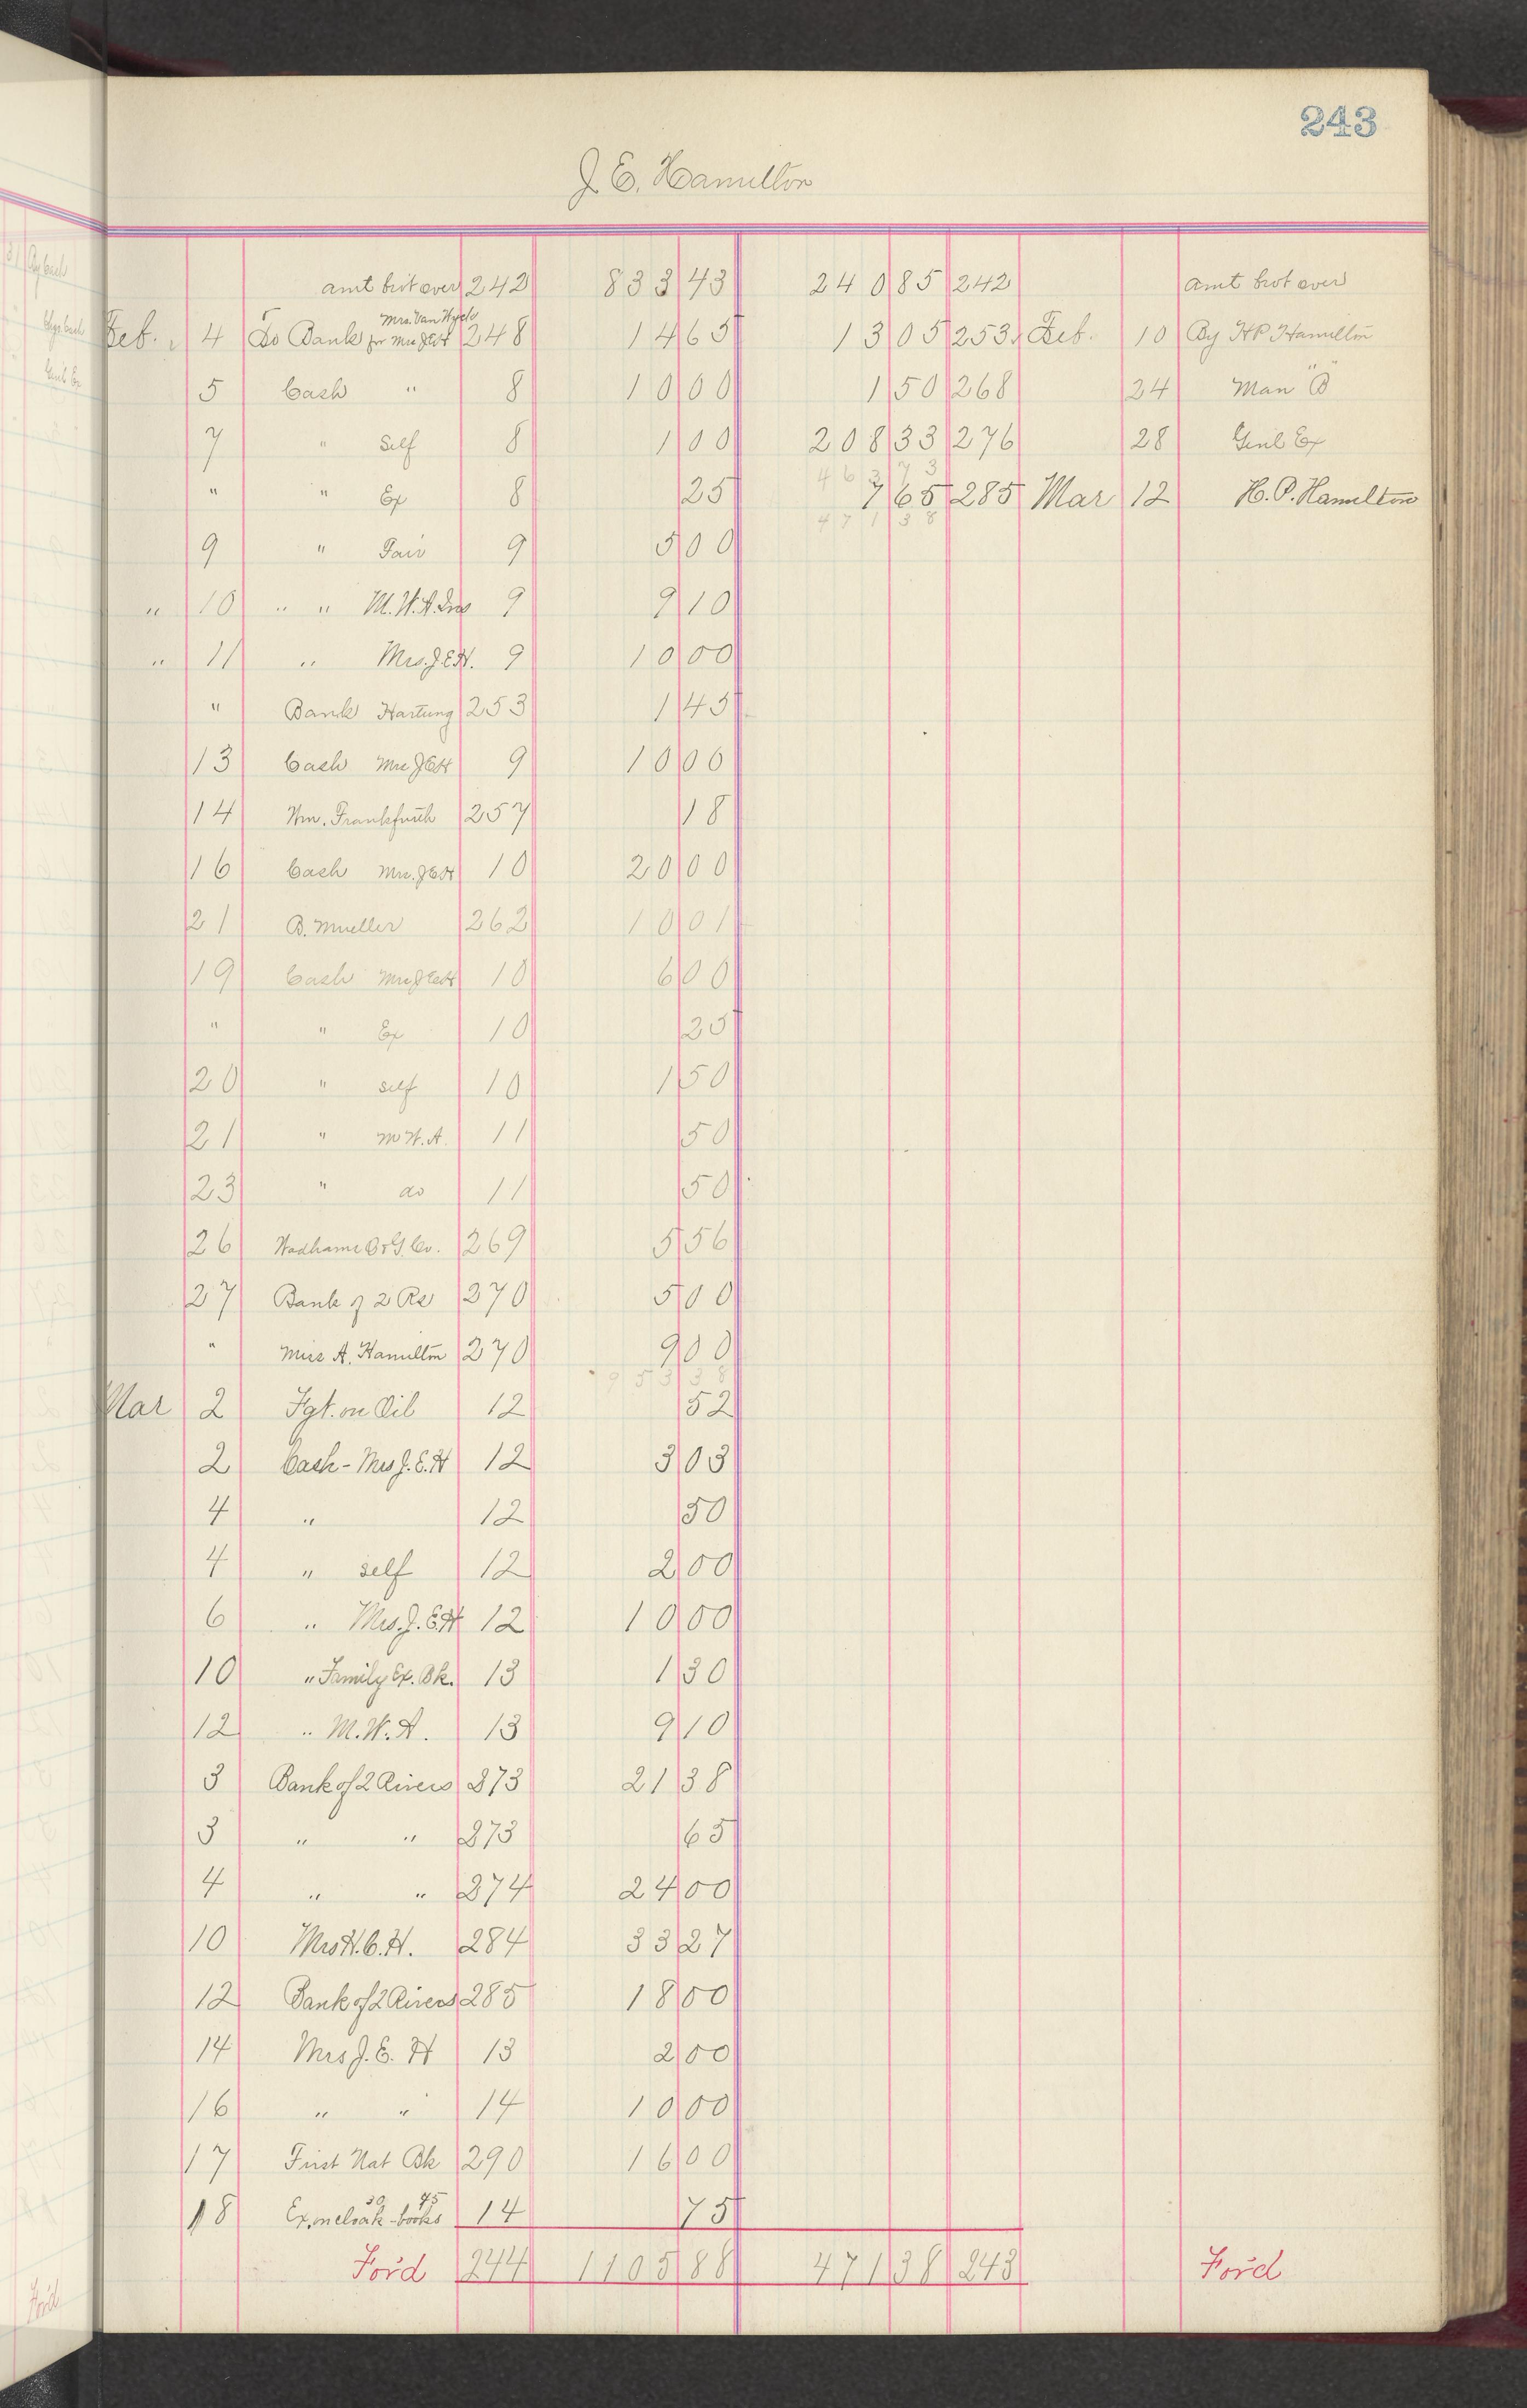 243
J. E. Hamilton
amt brot over 242 833 43 240 85 242 amt brot over
Mrs. Van Wyck
Feb. 4 To Bank for Mrs JEH 248 14 65 13 05 253 Feb. 10 By H P Hamilton
5 Cash " 8 10 00 1 50 268 24 Man "B"
7 " Self 8 1 00 208 33 276 28 Genl Ex
463 73
" " Ex 8 25 7 65 285 Mar 12 H. P. Hamilton
471 38
9 " Fair 9 5 00
" 10 " " M. W. A. Ins 9 9 10
" 11 " Mrs. J.E.H. 9 10 00
" Bank Hartung 253 1 45
13 Cash Mrs JEH 9 10 00
14 Wm. Frankfurth 257 18
16 Cash Mrs. JEH 10 20 00
21 B. Mueller 262 10 01
19 Cash Mrs JEH 10 6 00
" " Ex 10 25
20 " self 10 1 50
21 " M W. A. 11 50
23 " do 11 50
26 Wadhams O & G. Co. 269 5 56
27 Bank of 2 Rs 270 5 00
" Miss A. Hamilton 270 9 00
953 38
Mar 2 Fgt. on Oil 12 52
2 Cash - Mrs J. E. H 12 3 03
4 " 12 50
4 " self 12 2 00
6 " Mrs. J. E. H 12 10 00
10 " Family Ex. Bk. 13 1 30
12 " M. W. A. 13 9 10
3 Bank of 2 Rivers 273 21 38
3 " " 273 65
4 " " 274 24 00
10 Mrs H. C. H. 284 33 27
12 Bank of 2 Rivers 285 18 00
14 Mrs J. E. H 13 2 00
16 " " 14 10 00
17 First Nat Bk 290 16 00
30 45
18 Ex. on cloak - books 14 75
For'd 244 1105 88 471 38 243 For'd